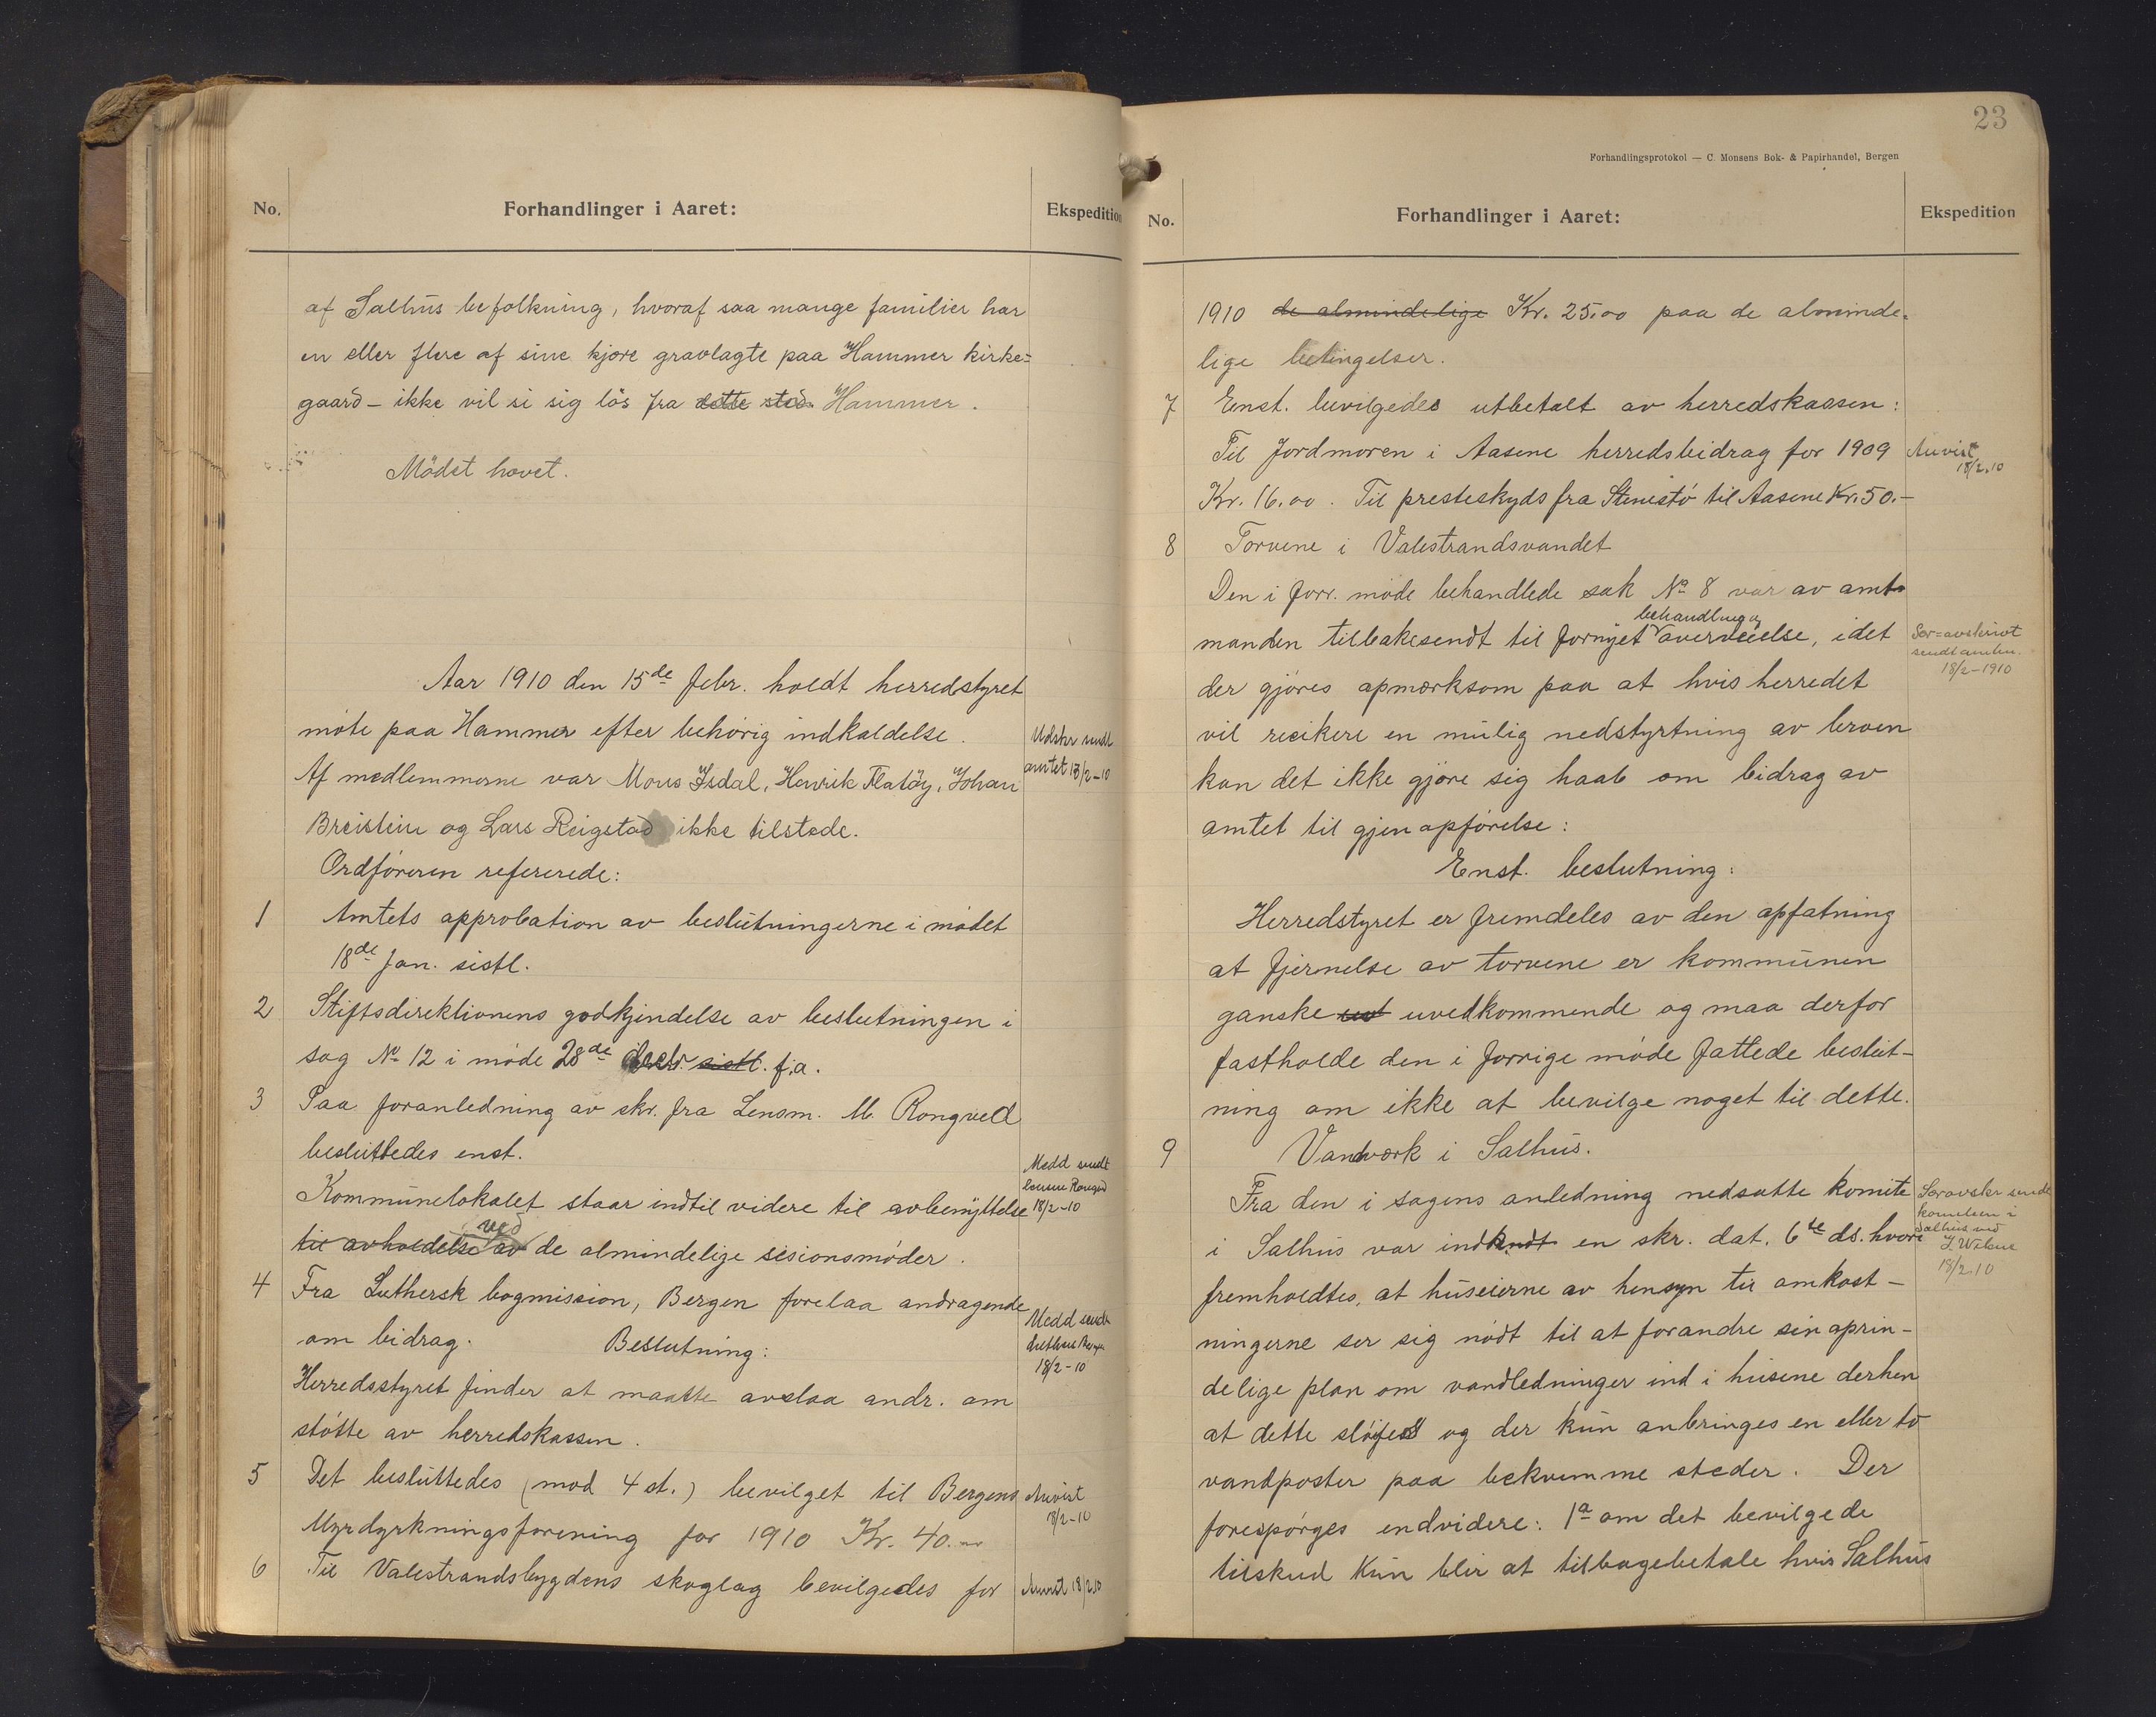 No.
Forhandlinger i Aaret:
Ekspedition
af Salhus befolkning, hvoraf saa mange familier har
en eller flere af sine kjære gravlagte paa Hammer kirke=
gaard – ikke vil si sig lös fra dette sted. Hammer.
Mödet hævet.
Aar 1910 den 15de febr. holdt herredstyret
möte paa Hammer efter behörig indkaldelse.
Udskr sendt
amtet 18/2-10
Af medlemmerne var Mons Isdal, Henrik Flatöy, Johan
Breistein og Lars Reigstad ikke tilstede.
Ordföreren refererede:
1 Amtets approbation av beslutningerne i mödet
18de jan. sistl.
2 Stiftsdirektionens godkjendelse av beslutningen i
sag No 12 i möde 28de decbr. sistl. f.a.
3 Paa foranledning av skr. fra Lensm. M. Rongved
besluttedes enst.
Medd sendt
18/2-10
Kommunelokalet staar indtil videre til avbenyttelse
til avholdelse av ved de almindelige sesionsmöder.
4 Fra Luthersk bogmission, Bergen forelaa andragende
om bidrag. Beslutning:
Medd sendt
18/2-10
Herredsstyret finder at maatte avslaa andr. om
stötte av herredskassen.
5 Det besluttedes (mod 4 st.) bevilget til Bergens
Myrdyrkningsforening for 1910 Kr. 40.00
Anvist
18/2-10
6 Til Valestrandsbygdens skoglag bevilgedes for
Anvist 18/2 10
23
Forhandlingsprotokol — C. Monsens Bok- & Papirhandel, Bergen
No.
Forhandlinger i Aaret:
Ekspedition
1910 de almindelige Kr. 25.00 paa de alminde=
lige betingelser.
7 Enst. bevilgedes utbetalt av herredskassen:
Til Jordmoren i Aasene herredsbidrag for 1909
Anvist
18/2.10
Kr. 16.00. Til presteskyds fra Stenestö til Aasene Kr. 50.–
8 Torvene i Valestrandsvandet
Den i forr. möde behandlede sak No 8 var av amt
manden tilbakesendt til fornyet behandling og overveielse, idet
Sær=avskrivt
sendt amtm.
18/2-1910
der gjöres opmærksom paa at hvis herredet
vil recikere en mulig nedstyrtning av broen
kan det ikke gjöre sig haab om bidrag av
amtet til gjenopförelse:
Enst. beslutning:
Herredstyret er fremdeles av den opfatning
at fjernelse av torvene er kommunen
ganske uvedkommende og maa derfor
fastholde den i forrige möde fattede beslut-
ning om ikke at bevilge noget til dette.
9 Vandværk i Salhus.
Fra den i sagens anledning nedsatte komite
Særavskr sendt
komiteen i
Salhus ved
18/2.10
i Salhus var indsendt en skr. dat. 6te ds. hvori
fremholdtes, at huseierne av hensyn til omkost-
ningerne ser sig nödt til at forandre sin oprin-
delige plan om vandledninger ind i husene derhen
at dette slöifes og der kun anbringes en eller to
vandposter paa bekvemme steder. Der
forespörges endvidere: 1a om det bevilgede
tilskud kun blir at tilbagebetale hvis Salhus